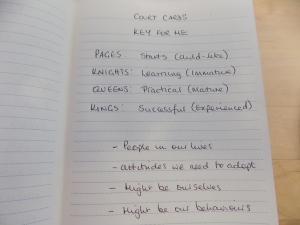 COURT CARDS
KEY FOR ME
PAGES: Starts (Child-like)
KNIGHTS: Learning (Immature)
QUEENS: Practical (Mature)
KINGS: Successful (Experienced)
- People in our lives
- Attitudes we need to adopt
- Might be ourselves
- Might be our behaviours